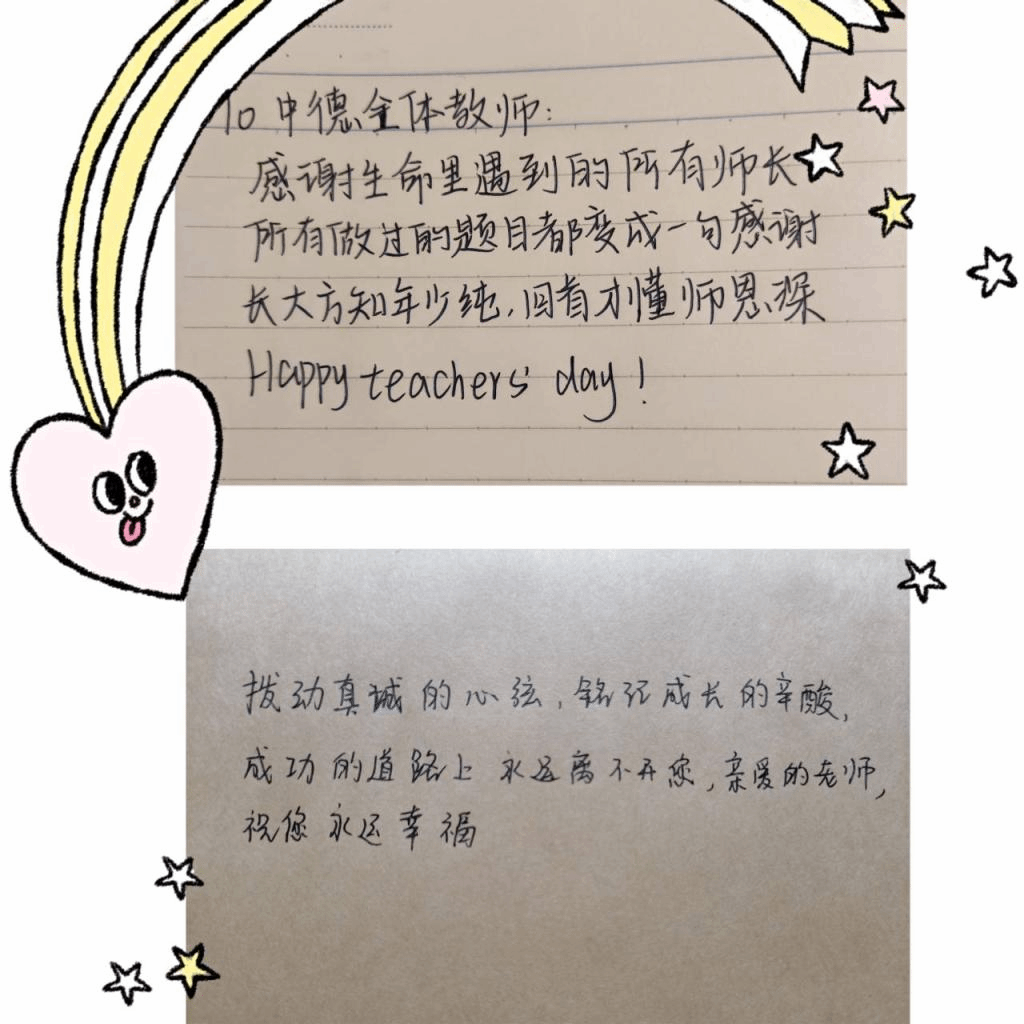 To 中德全体教师:
感谢生命里遇到的所有师长
所有做过的题目都变成一句感谢
长大方知年少纯,回首才懂师恩深
Happy teachers' day!
拨动真诚的心弦,铭记成长的辛酸,
成功的道路上 永远离不开您,亲爱的老师,
祝您 永远幸福